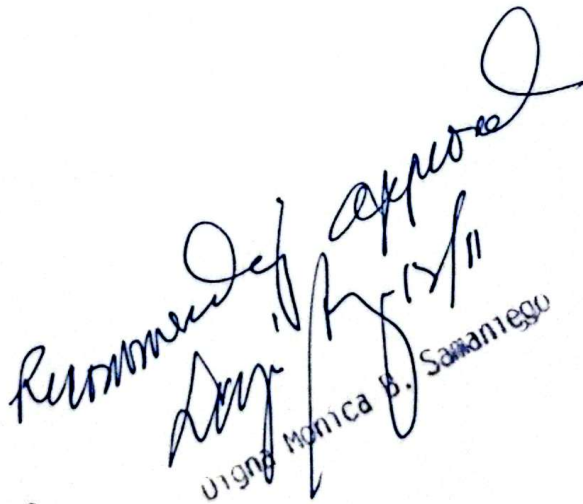 Recommending approval
12/11
Digna Monica B. Samaniego